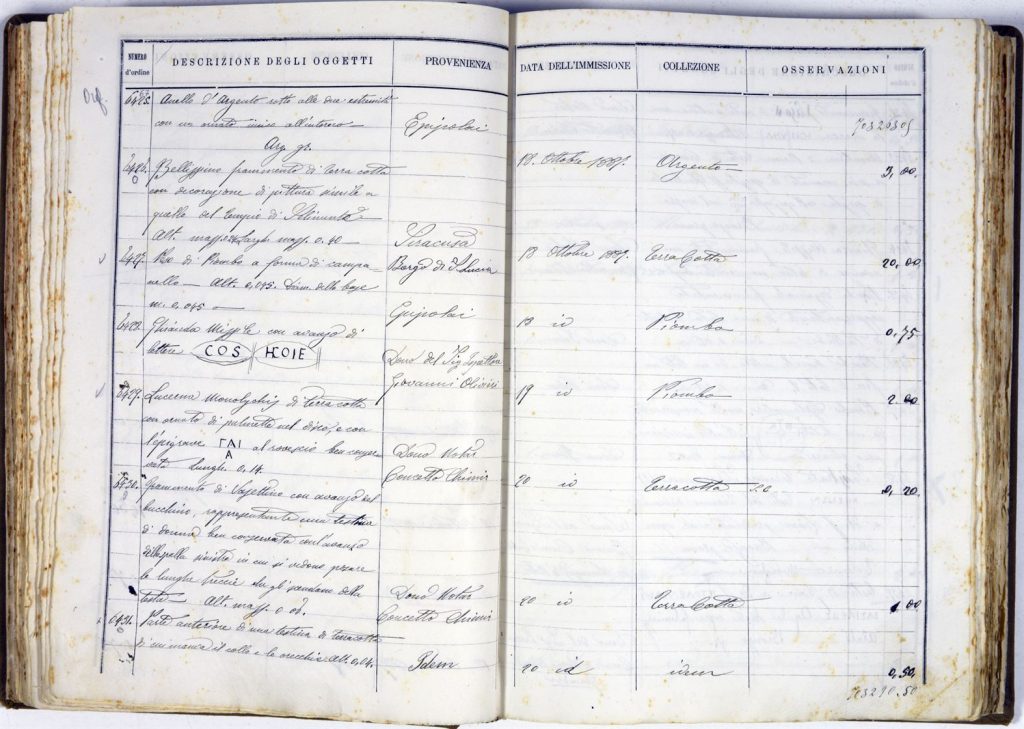 NUMERO d'ordine DESCRIZIONE DEGLI OGGETTI PROVENIENZA DATA DELL'IMMISSIONE COLLEZIONE OSSERVAZIONI
6425. Anello d'Argento rotto alle due estremità
con un ornato all'intorno Epipolai
Arg. gr. 18. Ottobre Argento 3,00
6426. Bellissimo frammento di terra cotta
con decorazione di pittura simile a
quelle del tempio di
Alt. mass. Largh. mass. 0.40 Siracusa
6427. di Piombo a forma di campa- Borgo di S. Lucia 18 Ottobre Terra Cotta 20,00
nello — Alt. 0,045. Diam. della base
m. 0,045 Epipolai 18 id Piombo 0,75
6428. Ghianda Missile con avanzo di
lettere COS HCOIE Dono del Sig.
Giovanni 19 id Piombo 2.00
6429. Lucerna di terra cotta
con ornato di palmette nel disco, e con
l'epigrafe ΓΑΙ al rovescio ben conser- Dono
Α
vata Lungh. 0.14. Concetto 20 id Terracotta 0,20
6430. Frammento di Vasettino con avanzo del
bucchino, rappresentante una testina
di donna ben conservata con l'avanzo
della spalla sinistra in cui si vedono posare
le lunghe treccie che gli pendono dalla Dono
testa — Alt. mass. 0. Concetto 20 id Terra Cotta 1 00
6431. Parte anteriore di una testina di terracotta
di cui manca il collo e le orecchie Alt. 0,04. Idem 20 id idem 0,50